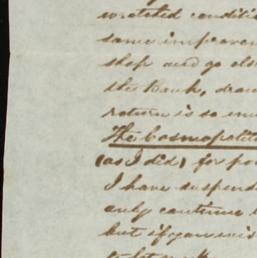 wretched conditi
same improvem
shop and go els
the bank, draw
return is so
The Cosmopolit
(as I did) for po
I have suspend
only continue
but if you wis